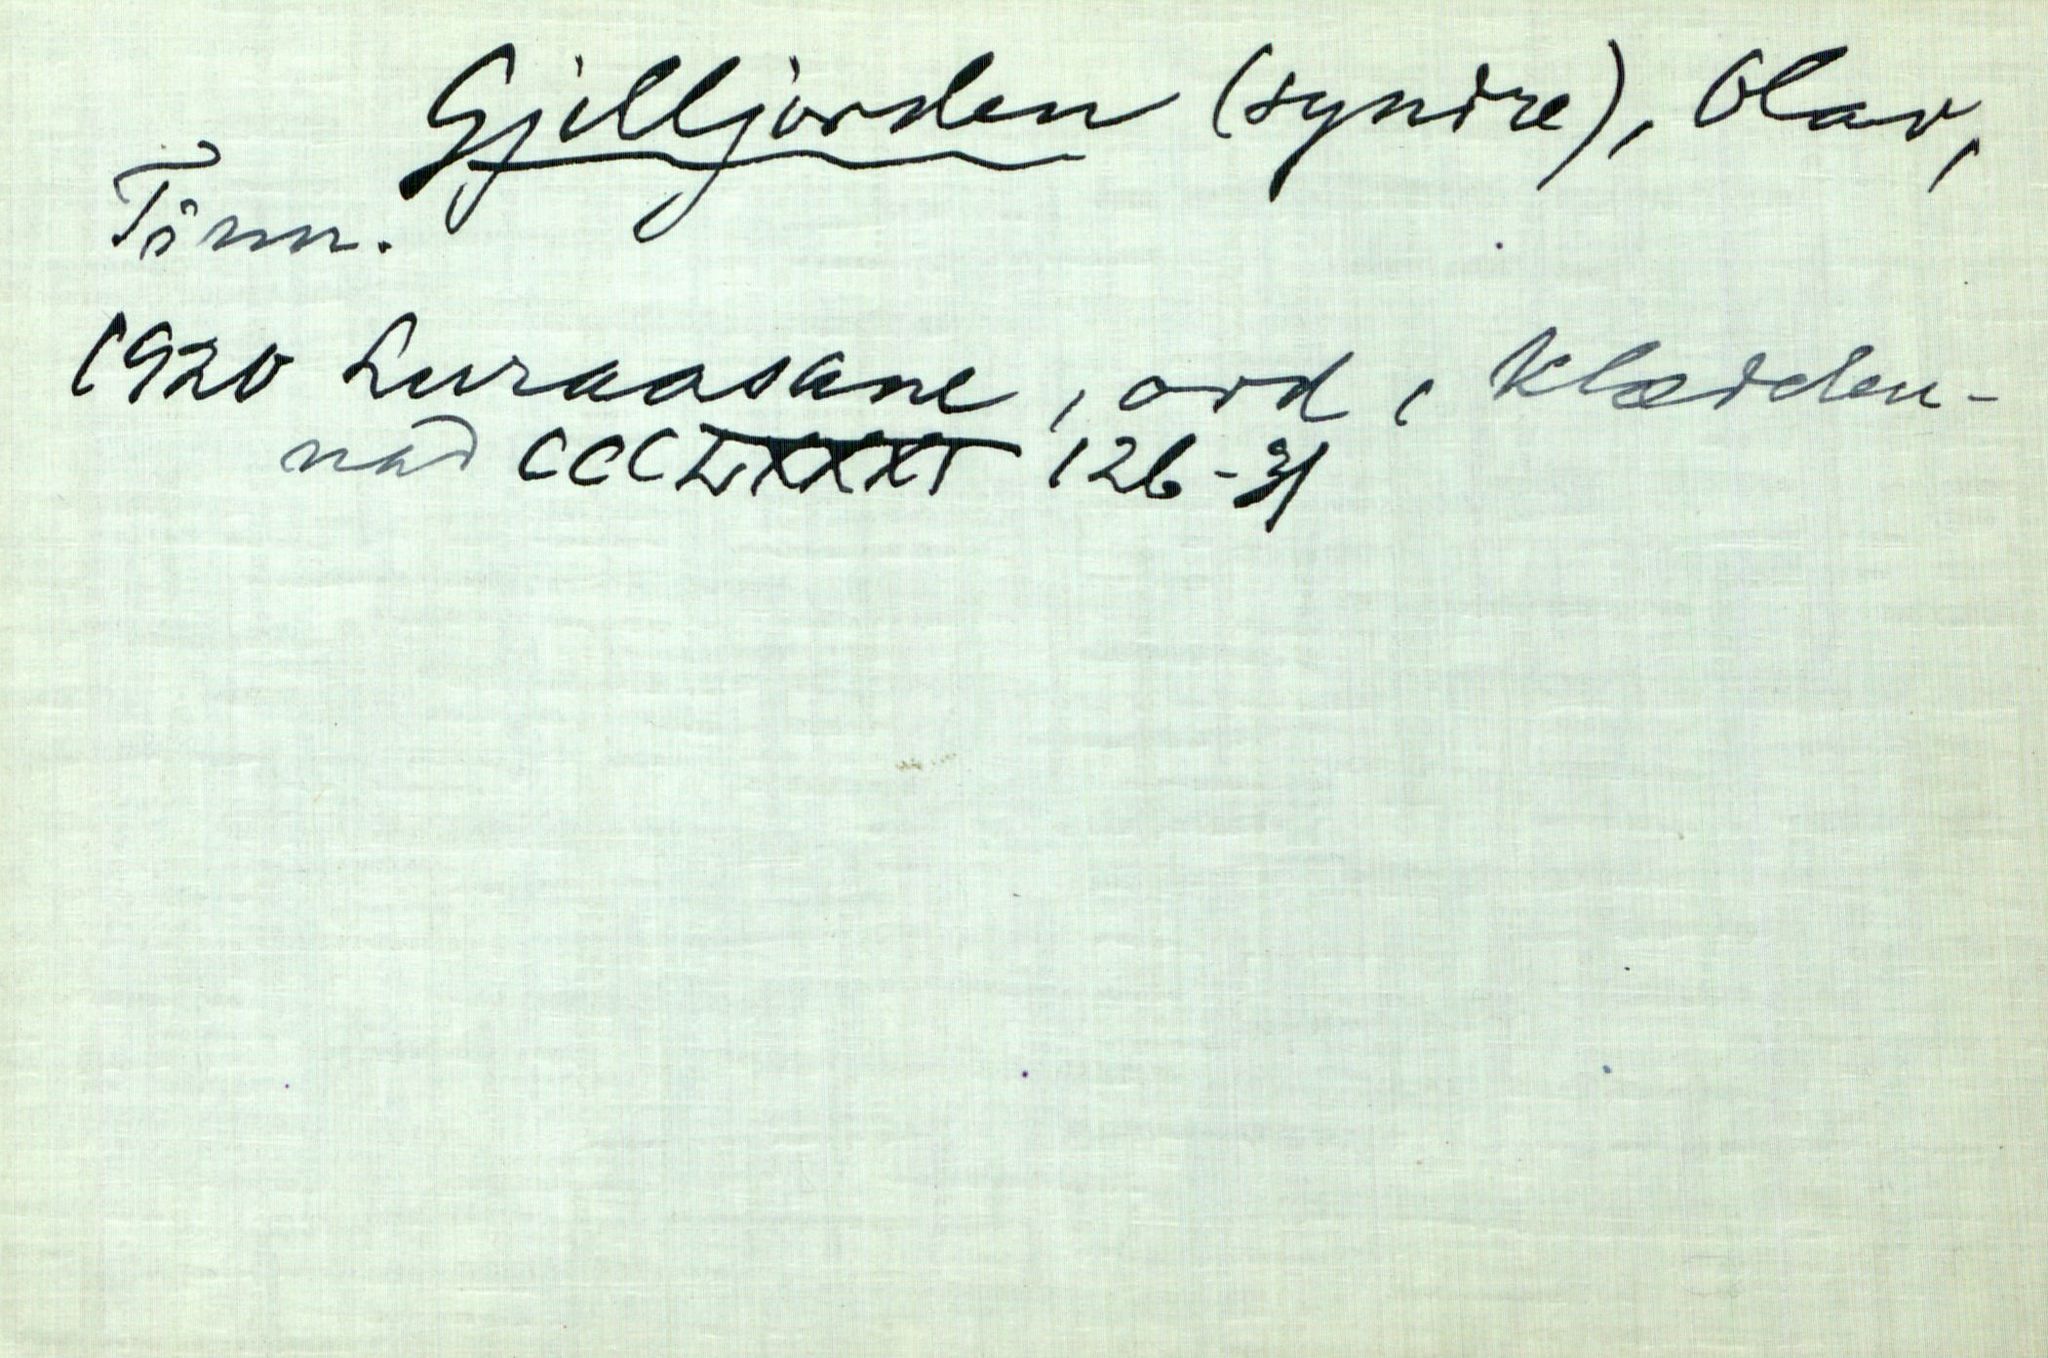 Gjilljorden (syndre), Olav,
Tinn.
1920 Luraasane, ord, klæden-
nad CCCLXXXXI 126-31